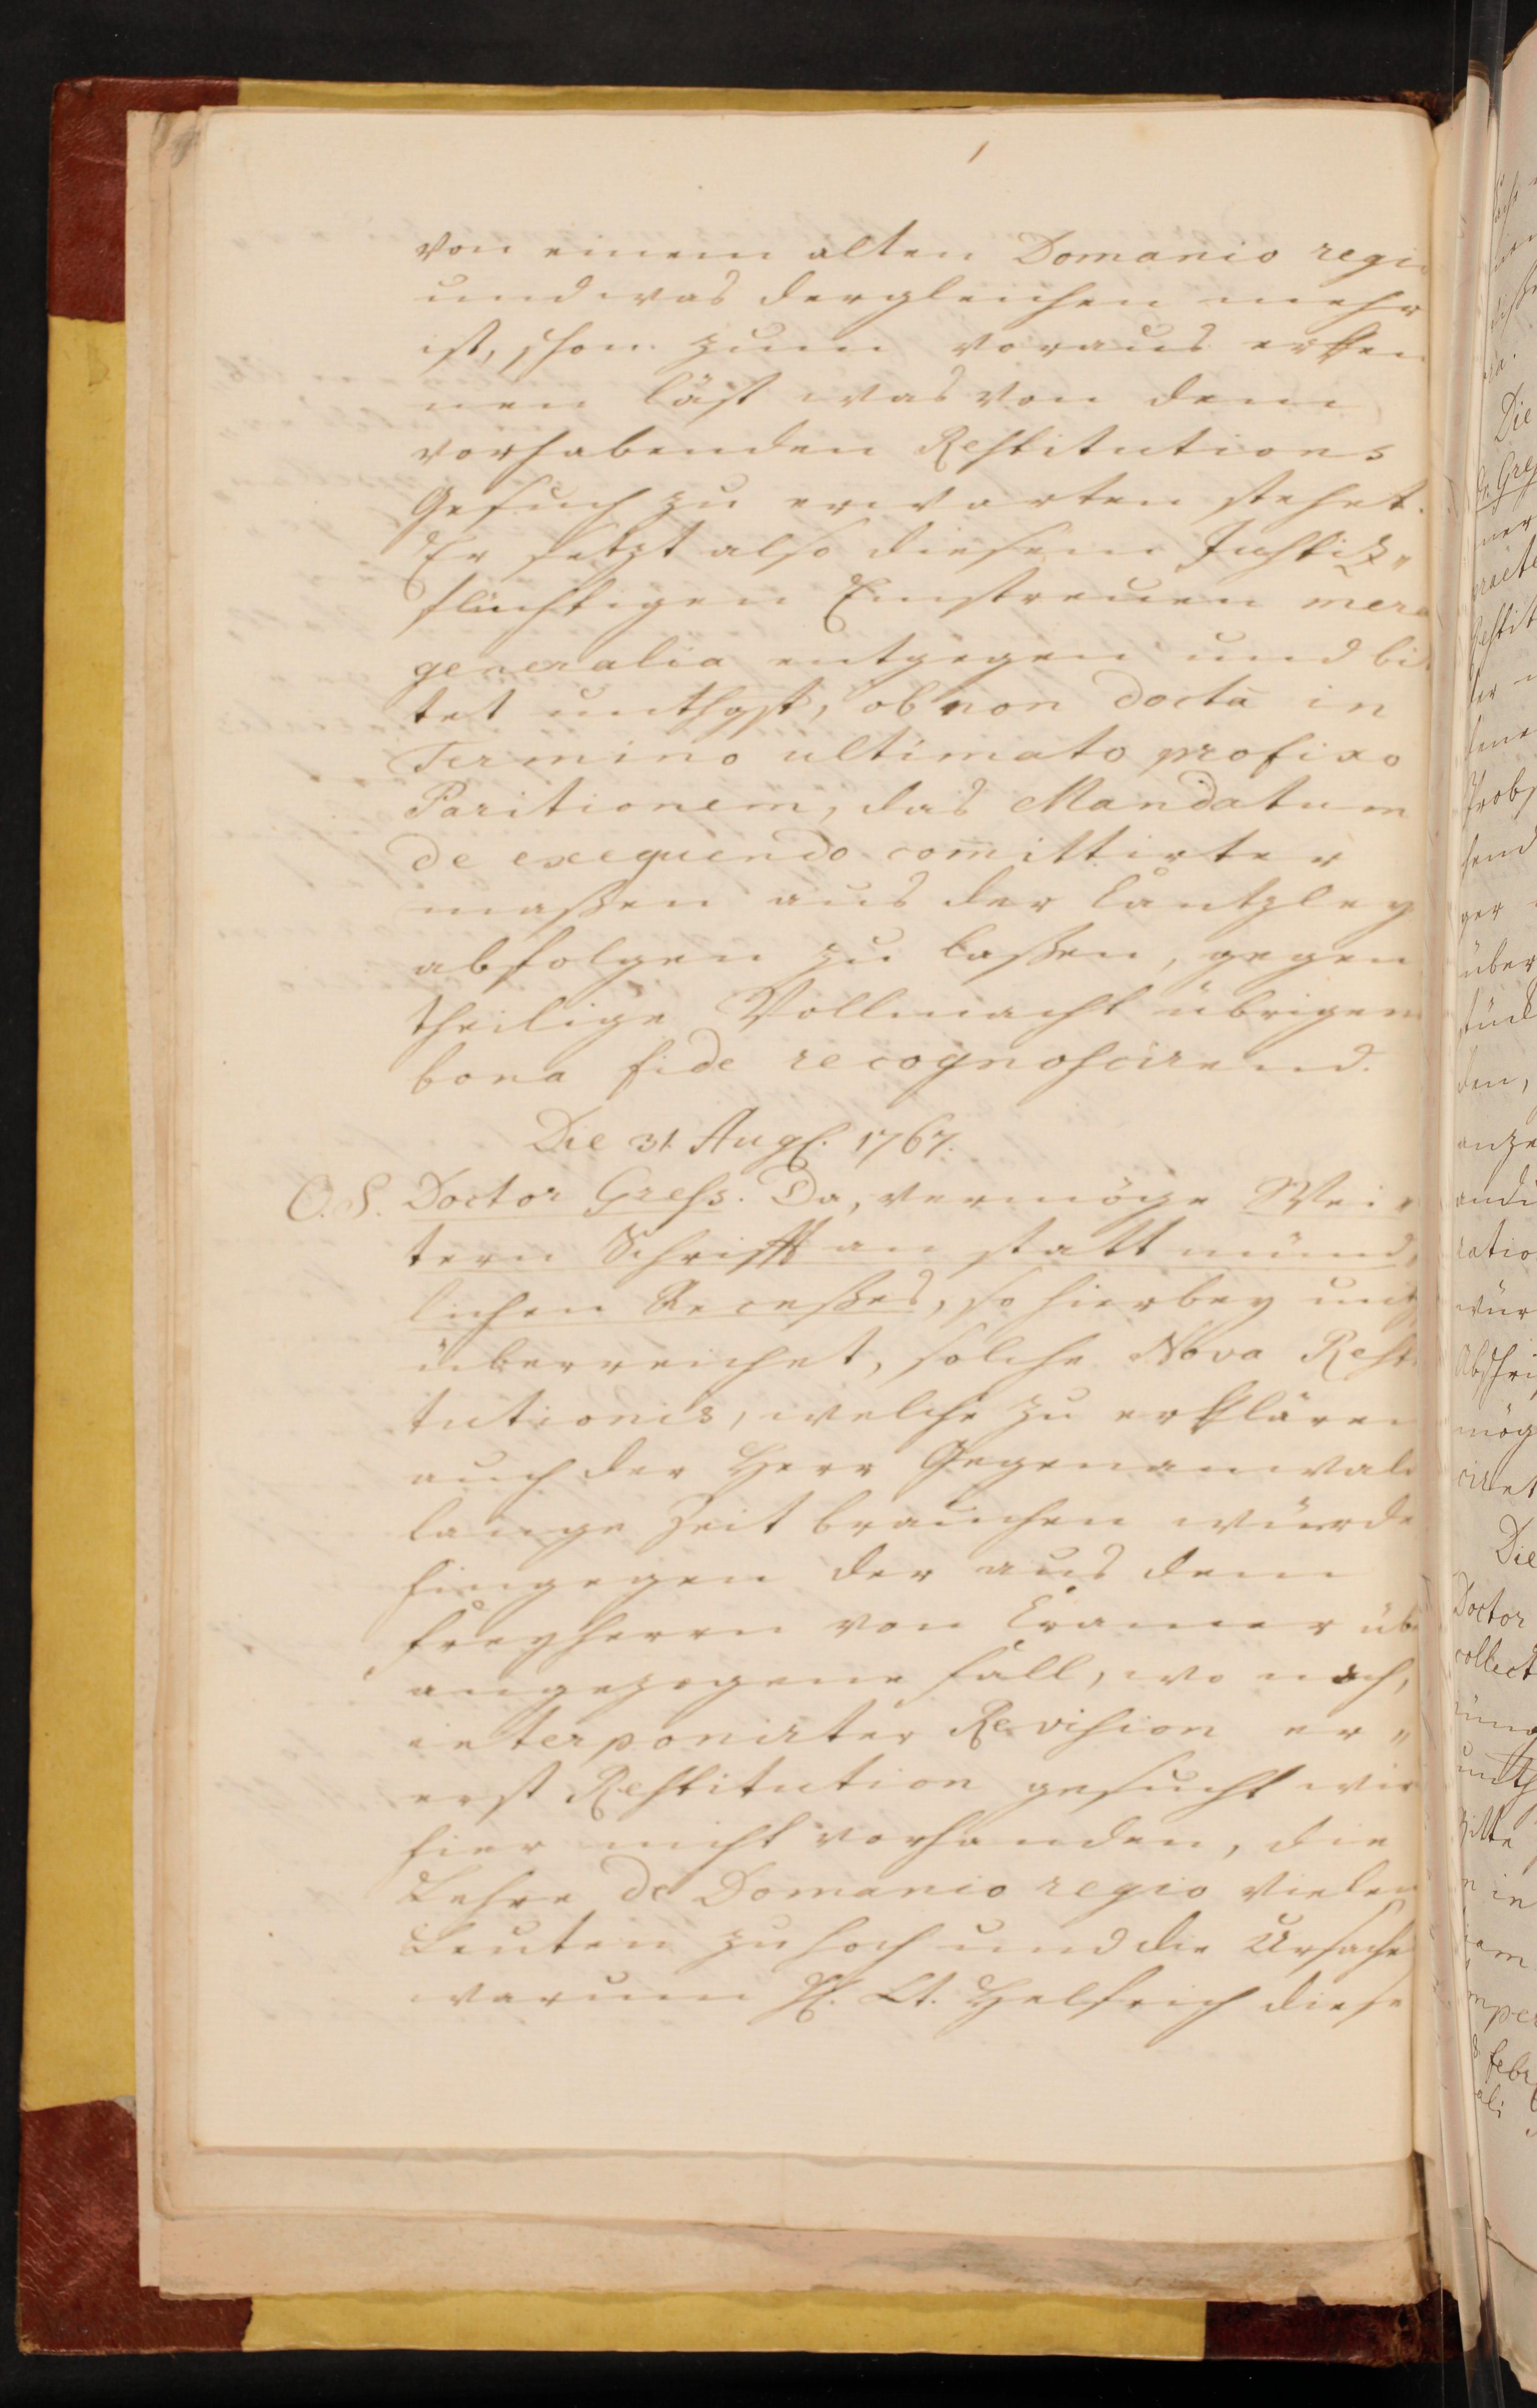 von einem alten Domanio regio
und was dergleichen mehr
ist, schon zum voraus erken
nen läst was von dem
vorhabenden Restitutions
Gesuch zu erwarten stehet.
Er setzt also diesem Justiz„
flüchtigen Einstreuen mera
generalia entgegen und bit
tet unthgst, ob non docta in
Termino ultimato præfixo
Paritionem, das Mandatum
de exequendo com̄ittirter
maßen aus der Cantzley
abfolgen zu laßen, gegen
theilige Vollmacht übrigens
bona fide recognoscirend.
Die 31. Aug. 1767.
O.S. Doctor Gress. Da, vermöge Wei„
tern Schrifft an statt münd„
lichen Recesses, so hierbey unth
überreichet, solche Nova Resti
tutionis, welche zu erklären
auch der Herr Gegenanwald
lange Zeit brauchen würde
hingegen der aus dem
Freyherrn von Cramer üb
angezogene Fall, wo nach,
interponirter Revision er„
erst Restitution gesucht wir
hier nicht vorhanden, die
Lehre de Domanio regio vielen
Leuten zu hoch und die Ursache
warum H. Lt. Helfrich diese